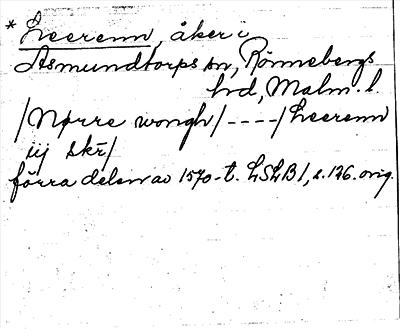 * Leerenn, åker i
Asmundtorps sn, Rönnebergs
hd, Malm. l.
/Nørre wongh/----/Leerenn
iij skr/
förra delen av 1570-t. LSLB 1, s. 126. orig.